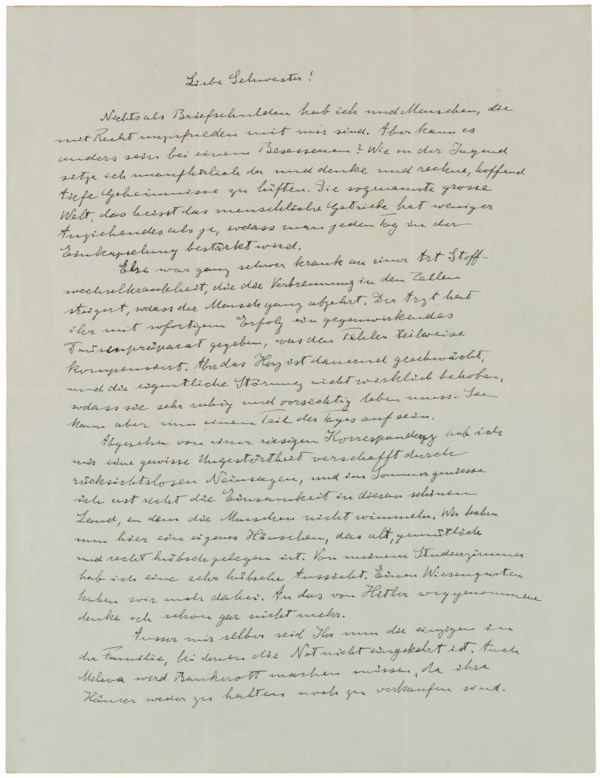 Liebe Schwester!
Nichts als Briefschulden hab ich und Menschen, die
mit Recht unzufrieden mit mir sind. Aber kann es
anders sein bei einem Besessenen? Wie in der Jugend
sitze ich unaufhörlich da und denke und rechne, hoffend
tiefe Geheimnisse zu lüften. Die sogenannte grosse
Welt, das heisst das menschliche Getriebe hat weniger
Anziehendes als je, sodass man jeden Tag in der
Einkapselung bestärkt wird.
Else war ganz schwer krank an einer Art Stoff-
wechselkrankheit, die die Verbrennung in den Zellen
steigert, sodass der Mensch ganz abzehrt. Der Arzt hat
ihr mit sofortigem Erfolg ein gegenwirkendes
Drüsenpräparat gegeben, was den Fehler teilweise
kompensiert. Aber das Herz ist dauernd geschwächt,
und die eigentliche Störung nicht wirklich behoben,
sodass sie sehr ruhig und vorsichtig leben muss. Sie
kann aber nun einen Teil des Tages auf sein.
Abgesehen von einer riesigen Korrespondenz hab ich
mir eine gewisse Ungestörtheit verschafft durch
rücksichtslosen Neinsagen, und im Sommer geniesse
ich erst recht die Einsamkeit in diesem schönen
Land, in dem die Menschen nicht wimmeln. Wir haben
nun hier ein eigenes Häuschen, das alt, gemütlich
und recht hübsch gelegen ist. Von meinem Studierzimmer
hab ich eine sehr hübsche Aussicht. Einen Wiesengarten
haben wir auch dabei. An das von Hitler weggenommene
denke ich schon gar nicht mehr.
Ausser mir selber seid Ihr nun die einzigen in
der Familie, bei denen die Not nicht eingekehrt ist. Auch
Mileva wird Bankerott machen müssen, da ihre
Häuser weder zu halten noch zu verkaufen sind.